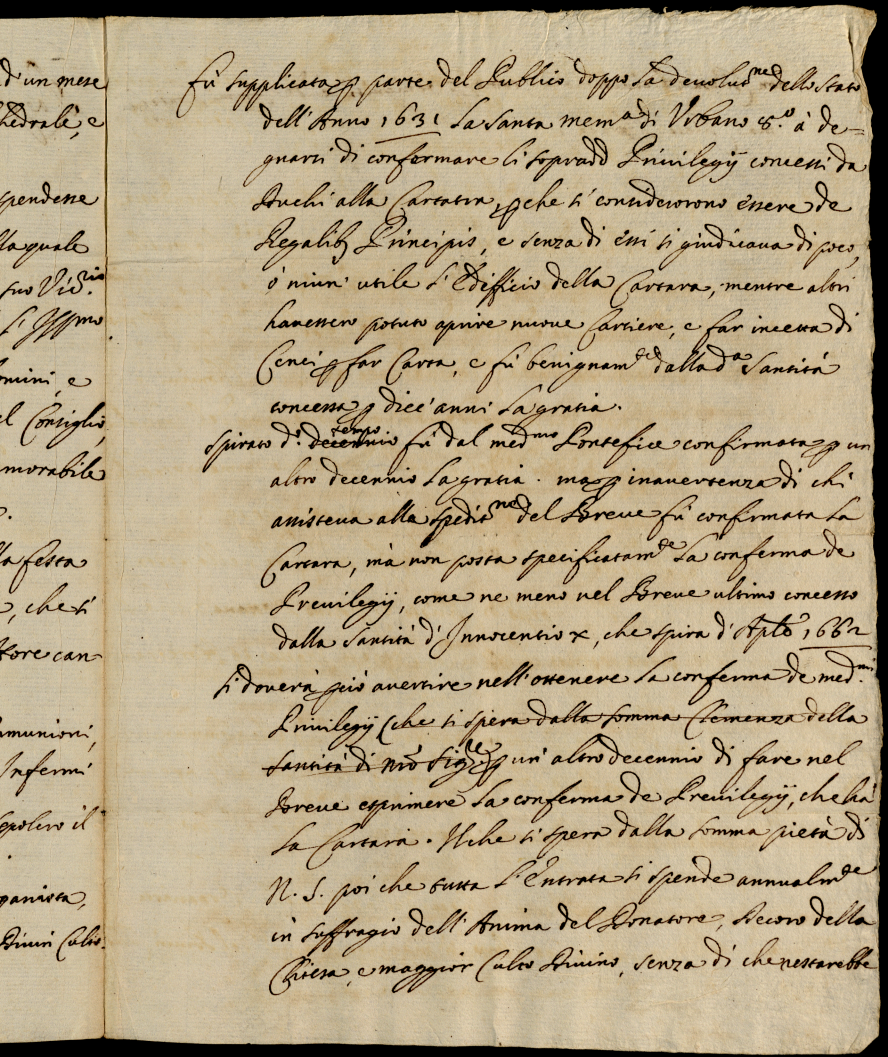 d'un mese
hedrale, e
spendesse
lla quale
suo Vic.rio
omini, e
el Consiglio,
morabile
lla festa
, che si
ttore can-
munioni,
Infermi
sepolcro il
panista,
Divin Culto.
Fù supplicata p parte del Publico doppo la devolut.ne dello Stato
dell'Anno 1631 la Santa mem.a di Urbano 8.o à de-
gnarsi di confermare li sopradd Privilegij concessi da
Duchi alla Cartara, p che si considerorono essere de
Regalib Principis, e senza di essi si giudicava di poco,
ò niun' utile l'Edifficio della Cartara, mentre altri
havessero potuto aprire nuove Cartiere, e far incetta di
Cenci p far Carta, e fù benignam.te dalla d.a Santità
concessa p diec'anni la gratia.
spirato d.o decennio tempo fù dal med.mo Pontefice confirmata p un
altro decennio la gratia. ma p inavertenza di chi
assisteva alla spedit.ne del Breve fù confirmata la
Cartara, mà non posta specificatam.te la conferma de
Previlegij, come ne meno nel Breve ultimo concesso
dalla Santità d'Innocentio X, che spira d'Aple 1662
si doverà p ciò avertire nell'ottenere la conferma de med.mi
Privilegij (che si spera dalla somma Clemenza della
Santità di Nro Sig.re) p un'altro decennio di fare nel
Breve esprimere la conferma de Previlegij, che hà
la Cartara. Il che si spera dalla somma pietà di
N. S. poi che tutta l'Entrata si spende annualm.te
in suffragio dell'Anima del Donatore, decoro della
Chiesa, e maggior Culto Divino, senza di che restarebbe